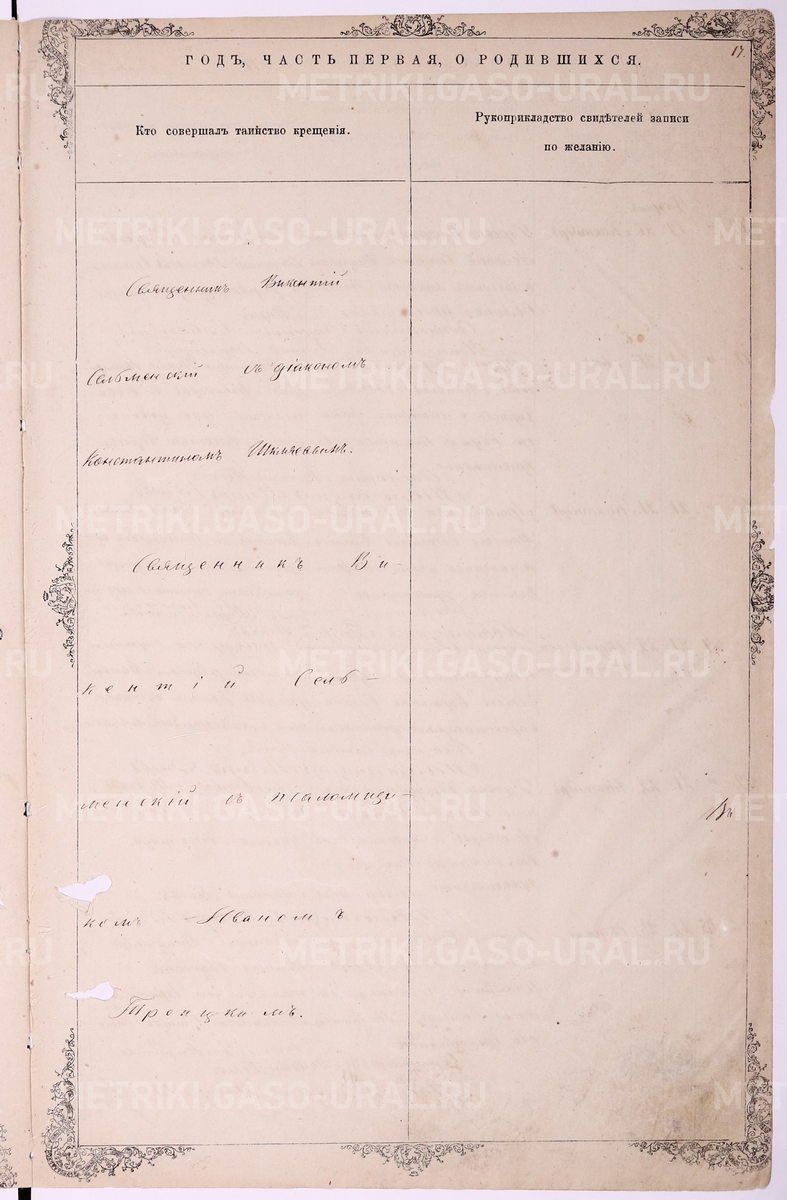 17.
ГОДЪ, ЧАСТЬ ПЕРВАЯ, О РОДИВШИХСЯ.
Кто совершалъ таинство крещенія.
Рукоприкладство свидѣтелей записи
по желанію.
Священникъ Викентій
Сельменскій съ діакономъ
Константиномъ
Священникъ Ви-
кентій Сель-
менскій съ псаломщи-
комъ Иваномъ
Троицкимъ.
METRIKI.GASO-URAL.RU